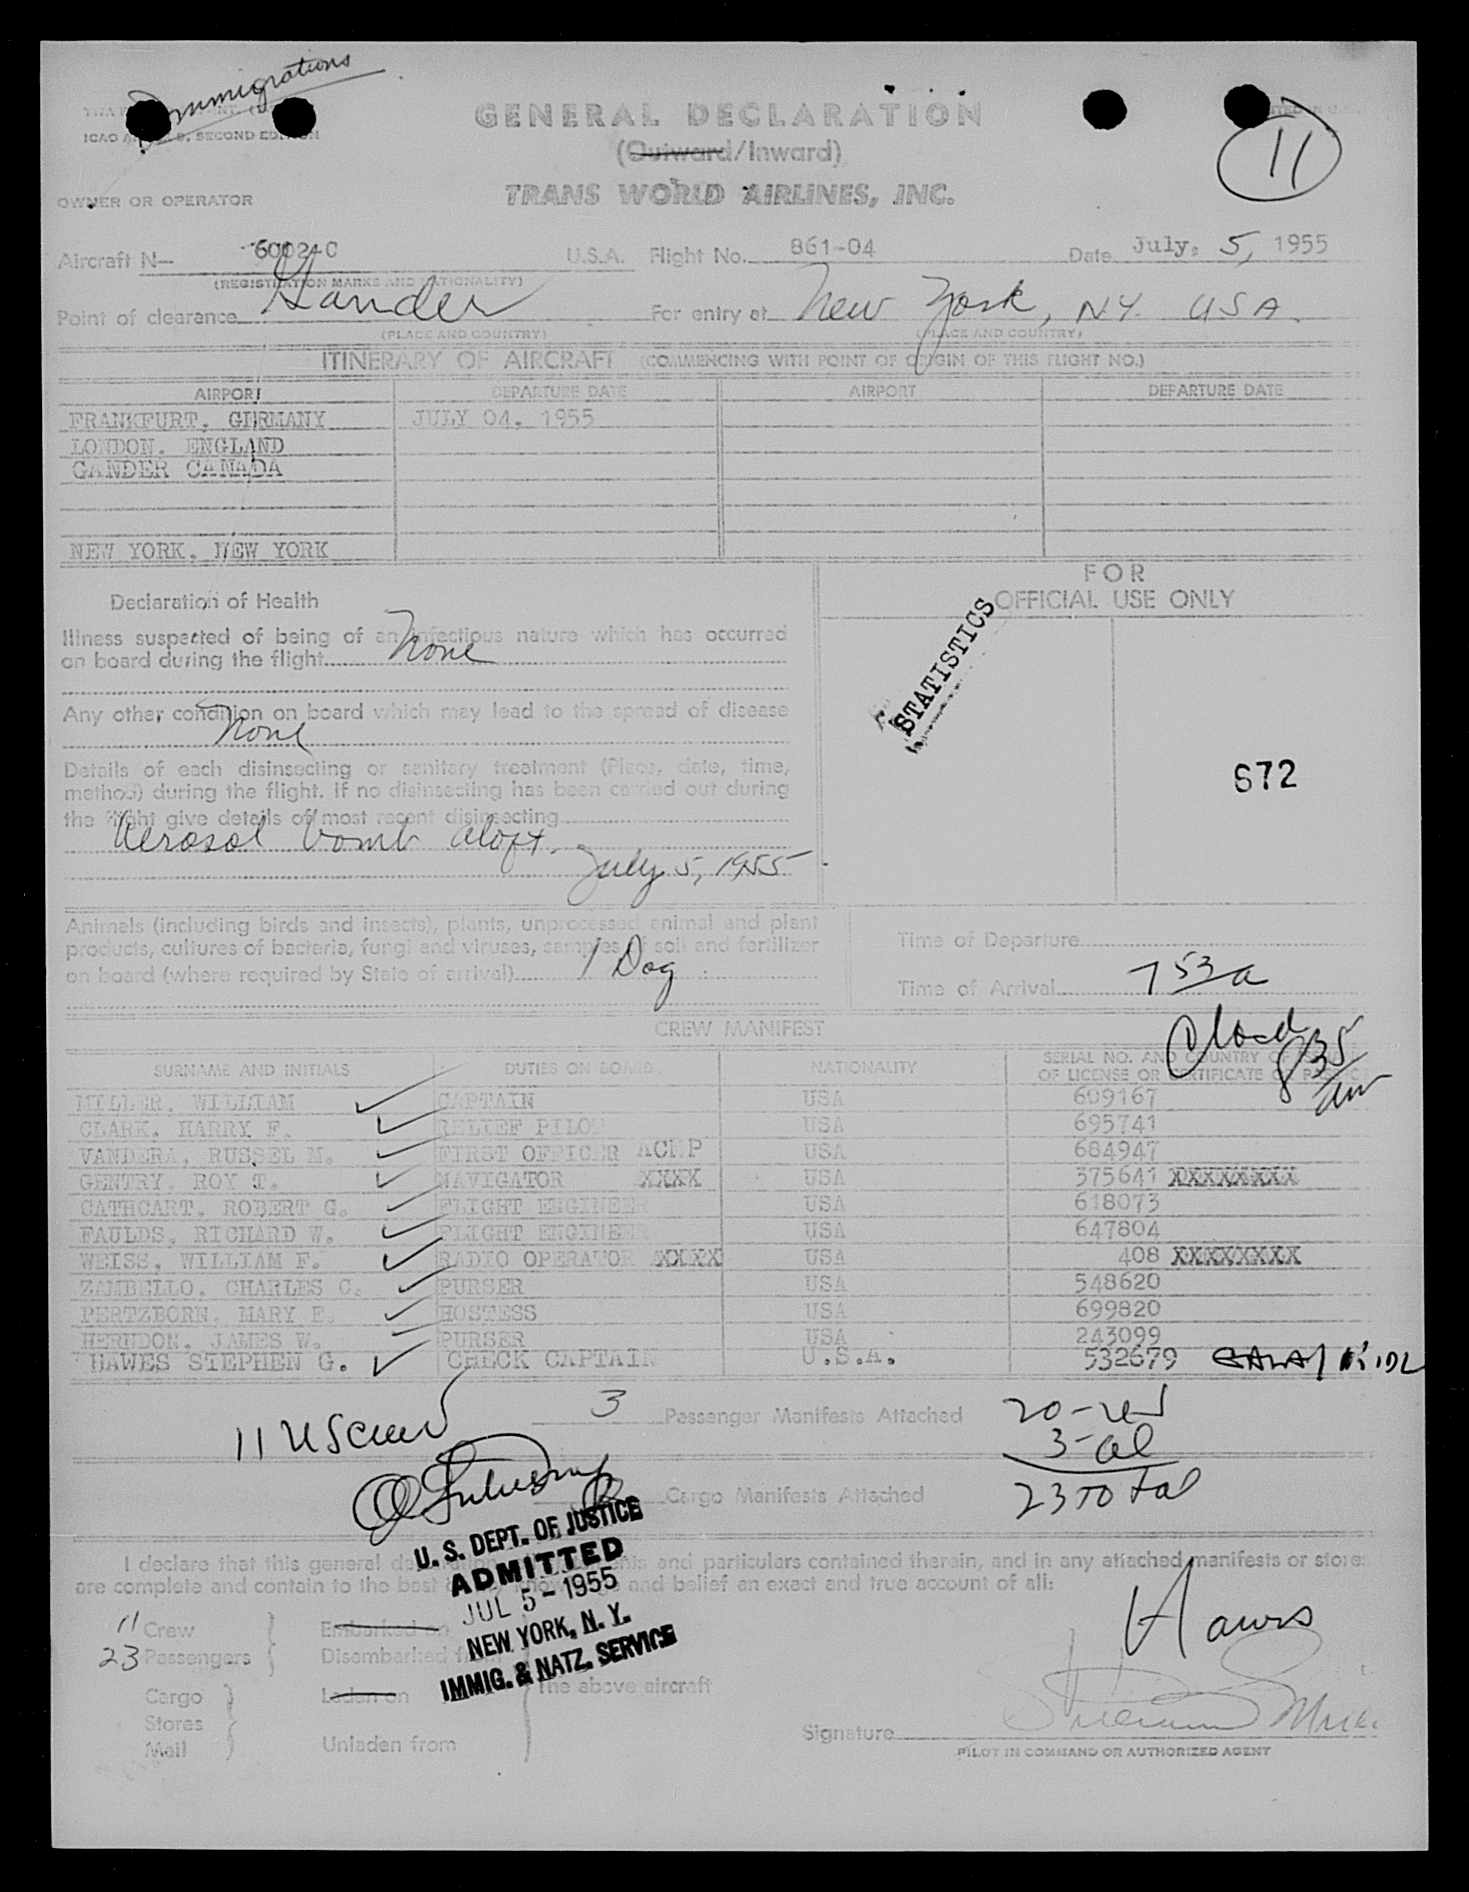 Immigrations
GENERAL DECLARATION
ICAO SECOND EDITION
(Outward/Inward)
11
OWNER OR OPERATOR
TRANS WORLD AIRLINES, INC.
Aircraft N- 6002-C U.S.A. Flight No. 861-04 Date July, 5, 1955
(REGISTRATION MARKS AND NATIONALITY)
Point of clearance Gander For entry at New York, NY. USA.
(PLACE AND COUNTRY) (PLACE AND COUNTRY)
ITINERARY OF AIRCRAFT (COMMENCING WITH POINT OF ORIGIN OF THIS FLIGHT NO.)
AIRPORT DEPARTURE DATE AIRPORT DEPARTURE DATE
FRANKFURT, GERMANY JULY 04, 1955
LONDON, ENGLAND
GANDER CANADA
NEW YORK, NEW YORK
FOR
OFFICIAL USE ONLY
STATISTICS
672
Declaration of Health
Illness suspected of being of an infectious nature which has occurred
on board during the flight None
Any other condition on board which may lead to the spread of disease
None
Details of each disinsecting or sanitary treatment (Place, date, time,
method) during the flight. If no disinsecting has been carried out during
the flight give details of most recent disinsecting
Aerosol bomb aloft.
July 5, 1955
Animals (including birds and insects), plants, unprocessed animal and plant
products, cultures of bacteria, fungi and viruses, samples of soil and fertilizer
on board (where required by State of arrival) 1 Dog
Time of Departure
Time of Arrival 753a
Cloced 835 am
CREW MANIFEST
SURNAME AND INITIALS DUTIES ON BOARD NATIONALITY SERIAL NO. AND COUNTRY OF ISSUE
OF LICENSE OR CERTIFICATE OR
MILLER, WILLIAM CAPTAIN USA 609167
CLARK, HARRY F. RELIEF PILOT USA 695741
VANDERA, RUSSEL M. FIRST OFFICER USA 684947
GENTRY, ROY T. NAVIGATOR XXXX USA 375641 XXXXXXXX
CATHCART, ROBERT G. FLIGHT ENGINEER USA 618073
FAULDS, RICHARD W. FLIGHT ENGINEER USA 647804
WEISS, WILLIAM F. RADIO OPERATOR XXXX USA 408 XXXXXXXX
ZAMBELLO, CHARLES C. PURSER USA 548620
PERTZBORN, MARY E. HOSTESS USA 699820
HERNDON, JAMES W. PURSER USA 243099
HAWES STEPHEN G. CHECK CAPTAIN U.S.A. 532679
11 US crew
3 Passenger Manifests Attached
20-us
3-al
23 Total
Cargo Manifests Attached
U. S. DEPT. OF JUSTICE
ADMITTED
JUL 5 - 1955
NEW YORK, N. Y.
IMMIG. & NATZ. SERVICE
I declare that this general declaration and particulars contained therein, and in any attached manifests or stores
are complete and contain to the best of my knowledge and belief an exact and true account of all:
Hawes
11 Crew Embarked on
23 Passengers Disembarked from
Cargo Laden on the above aircraft
Stores
Mail Unladen from
Signature
PILOT IN COMMAND OR AUTHORIZED AGENT